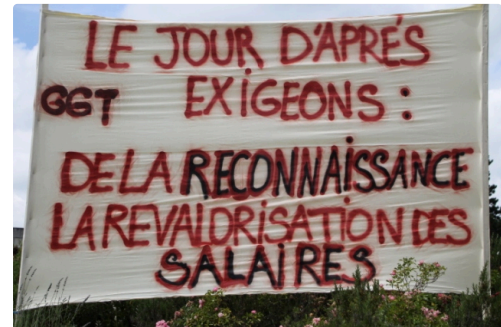 LE JOUR D'APRÉS
GGT EXIGEONS :
DE LA RECONNAISSANCE
LA REVALORISATION DES
SALAIRES